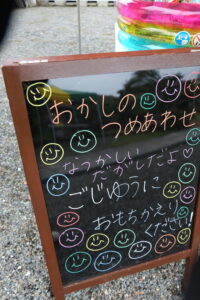 おかしの
つめあわせ
なつかしい
だがしだよ♡
ごじゆうに
おもちかえり
ください!